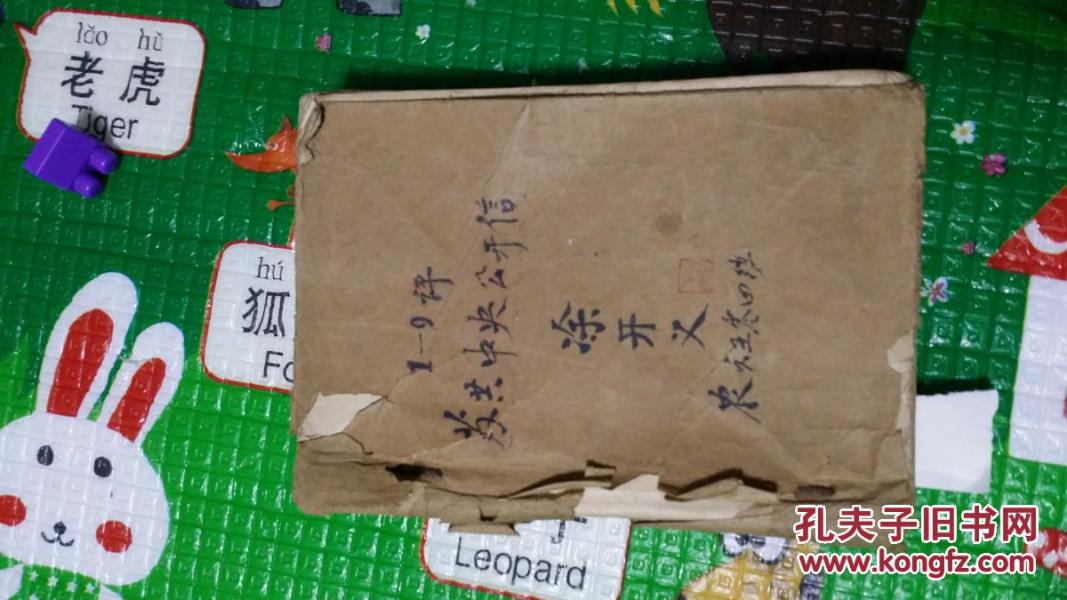 lǎo hǔ
老虎
Tiger
hú
狐
Fo
1—9评
苏共中央公开信
开义
农 四班
Leopard
孔夫子旧书网
www.kongfz.com